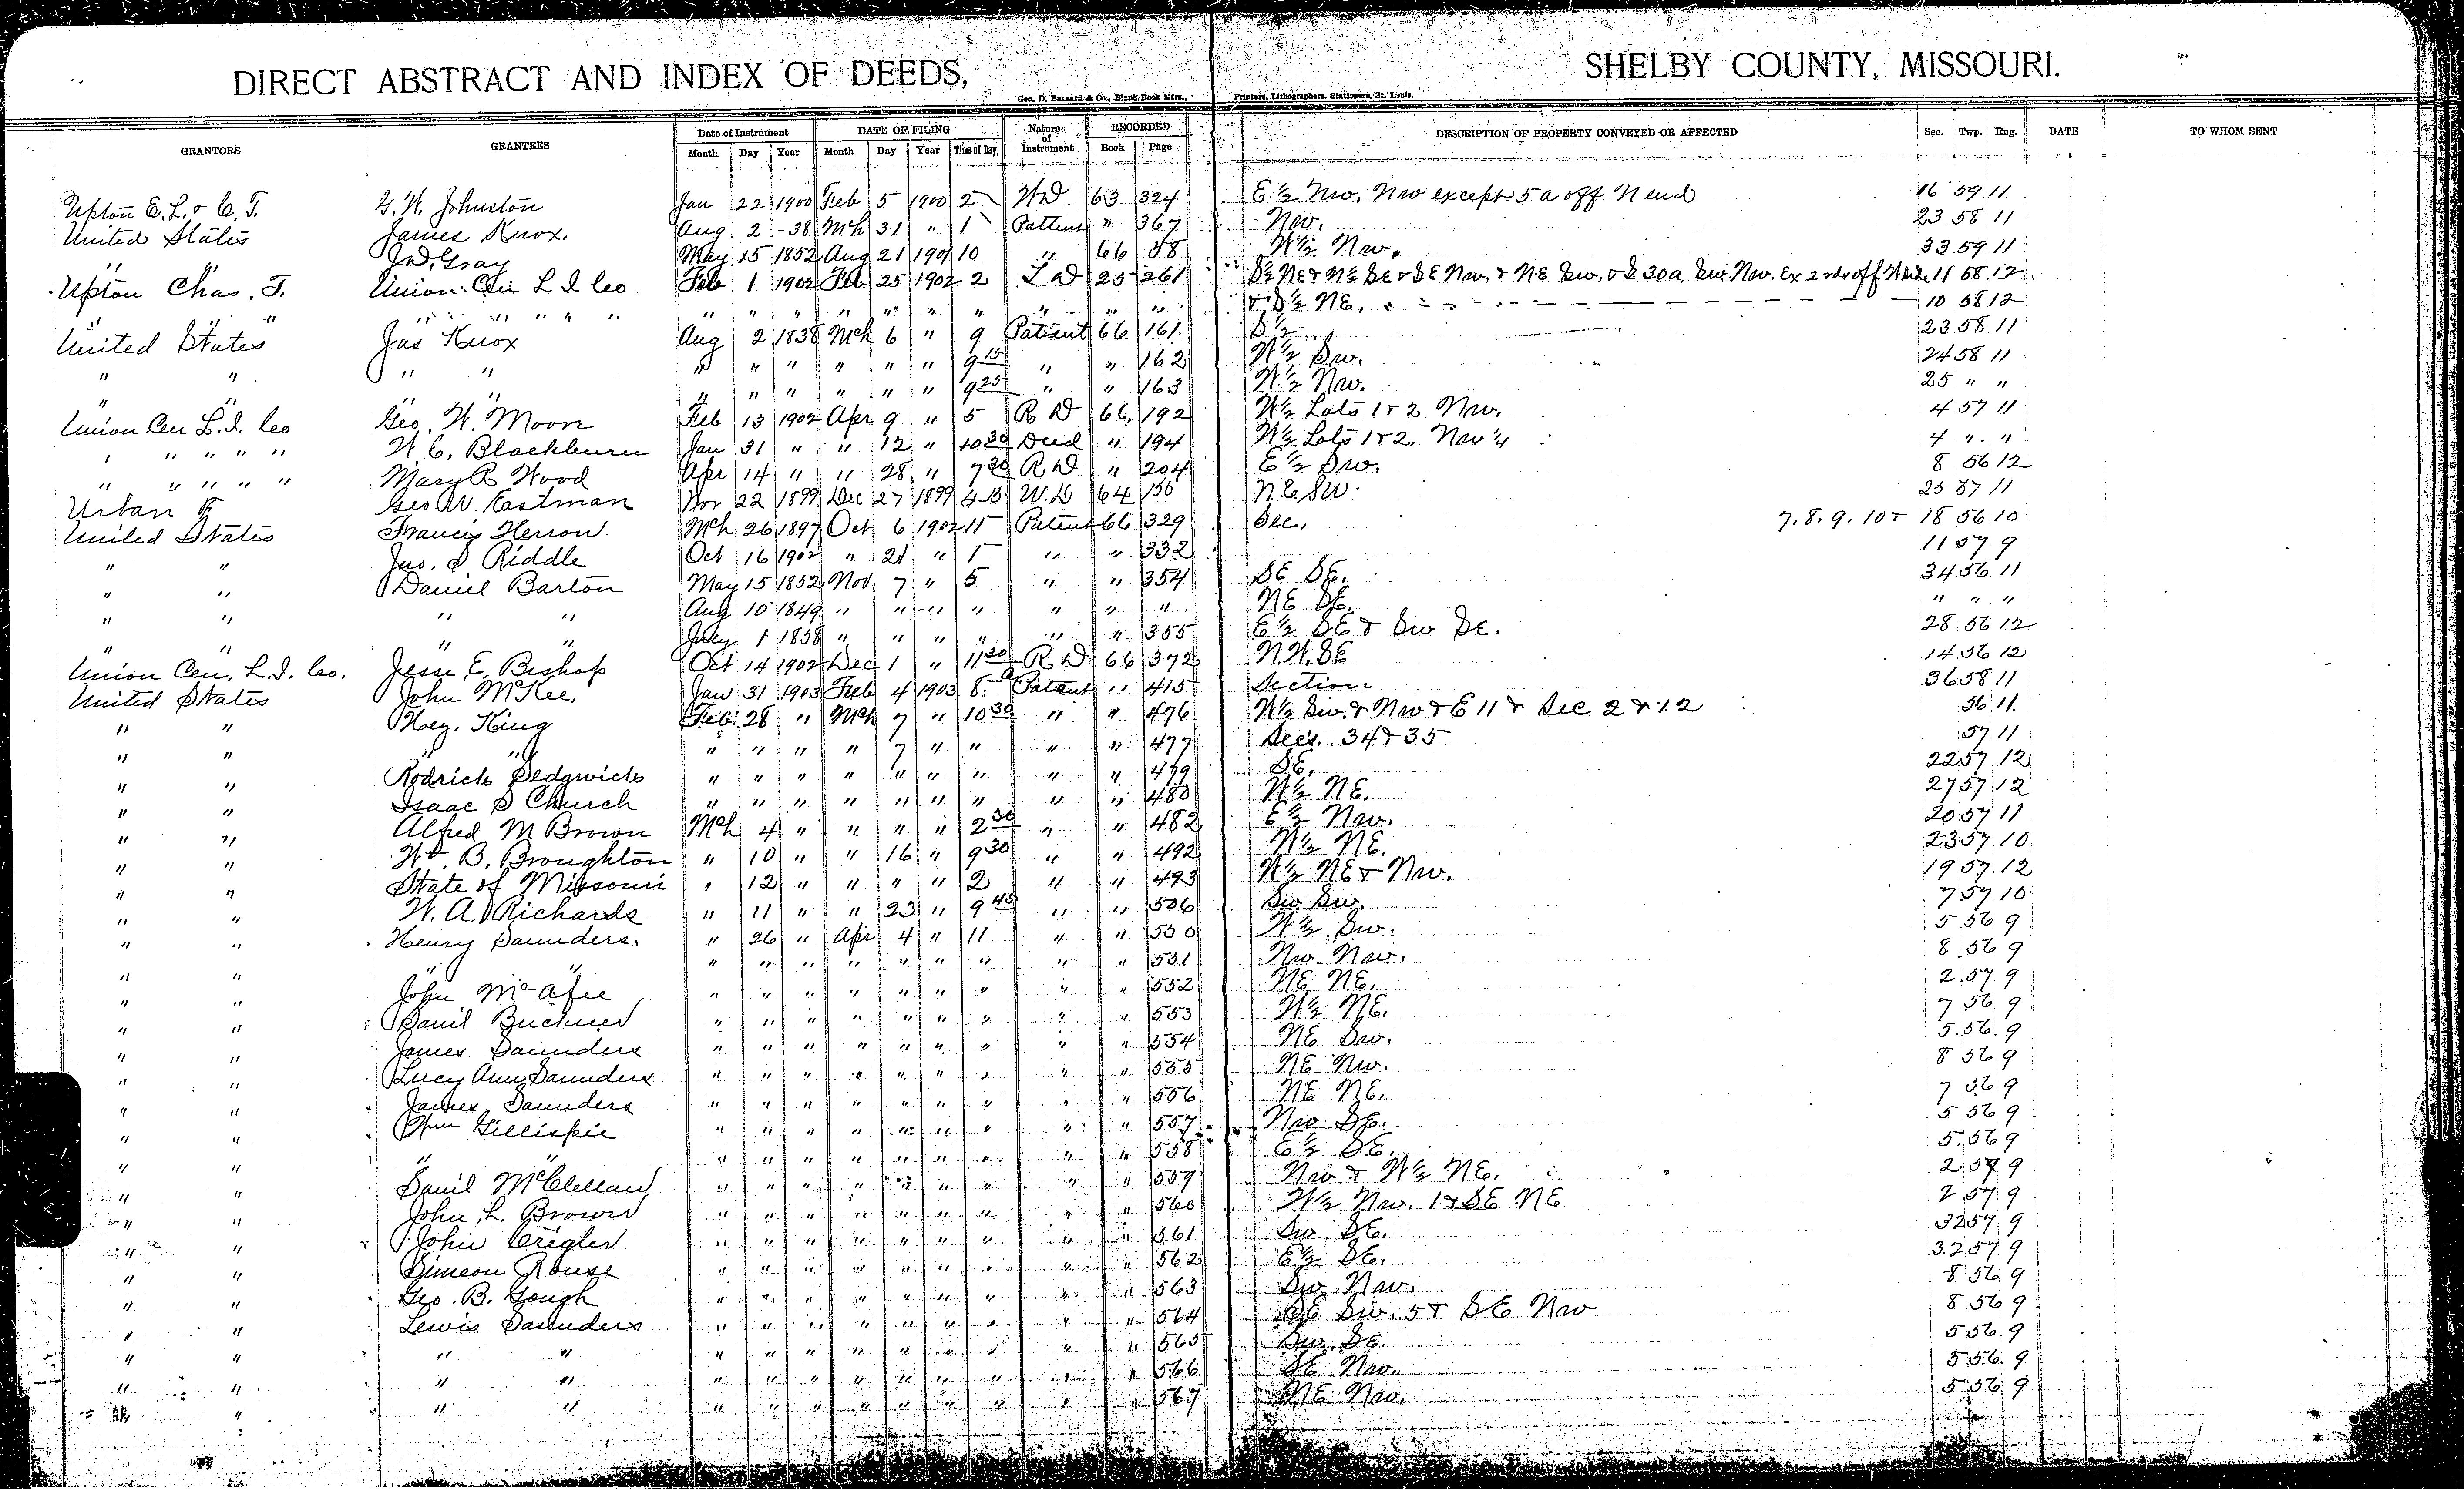 DIRECT ABSTRACT AND INDEX OF DEEDS, SHELBY COUNTY, MISSOURI.
Geo. D. Barnard & Co., Blank Book Mfrs., Printers, Lithographers, Stationers, St. Louis.
GRANTORS GRANTEES Date of Instrument DATE OF FILING Nature of Instrument RECORDED DESCRIPTION OF PROPERTY CONVEYED OR AFFECTED Sec. Twp. Rng. DATE TO WHOM SENT
Month Day Year Month Day Year Time of Day Book Page
Upton E. L. & C. T. G. W. Johnston Jan 22 1900 Feb 5 1900 2 WD 63 324 E ½ Nw. Nw except 5 a off N end 16 59 11
United States James Knox. Aug 2 -38 Mch 31 " 1 Pattent " 367 Nw. 23 58 11
" " Jno. Gray May 15 1852 Aug 21 1901 10 " 66 58 W ½ Nw. 33 59 11
Upton Chas. T. Union Cen L I Co Feb 1 1902 Feb 25 1902 2 T D 25 261 S ½ NE & N ½ SE & SE Nw. & NE Sw. & S 30a Sw Nw. Ex 2 rds off W side 11 58 12
" " " " " " " " " " " " " " " " " " & S ½ NE. 10 58 12
United States Jas Knox Aug 2 1838 Mch 6 " 9 Patient 66 161 S ½ 23 58 11
" " " " " " " " " " 9 15 " " 162 W ½ Sw. 24 58 11
" " " " " " " " " " 9 25 " " 163 W ½ Nw. 25 " "
Union Cen L. I. Co Geo. W. Moon Feb 13 1902 Apr 9 " 5 R D 66 192 W ½ Lots 1 & 2 Nw. 4 57 11
" " " " " W. C. Blackburn Jan 31 " " 12 " 10 30 Deed " 194 W ½ Lots 1 & 2. Nw ¼ 4 " "
" " " " " Mary R Wood Apr 14 " " 28 " 7 30 R D " 204 E ½ Sw. 8 56 12
Urban F Geo W. Eastman Nov 22 1899 Dec 27 1899 W. D 64 150 N.E SW. 25 57 11
United States Francis Herron Mch 26 1897 Oct 6 1902 11 Patent 66 329 Sec. 7. 8. 9. 10 & 18 56 10
" " Jno. S Riddle Oct 16 1902 " 21 " 1 " " 332 11 57 9
" " Daniel Barton May 15 1852 Nov 7 " 5 " " 354 SE SE. 34 56 11
" " " " Aug 10 1849 " " " " " " " NE SE. " " "
" " " " July 1 1858 " " " " " " 355 E ½ SE & Sw SE. 28 56 12
Union Cen. L. I. Co. Jesse E. Bishop Oct 14 1902 Dec 1 " 11 30 R D 66 372 N.W. SE 14 56 12
United States John McKee. Jan 31 1903 Feb 4 1903 8 Patent " 415 Section 36 58 11
" " Hez. King Feb 28 " Mch 7 " 10 30 " " 476 W ½ Sw. & Nw & E 11 & Sec 2 & 12 56 11
" " " " " " " " 7 " " " " 477 Secs. 34 & 35 57 11
" " Rodrick Sedgwick " " " " " " " " " 479 SE. 22 57 12
" " Isaac S Church " " " " " " " " " 480 W ½ NE. 27 57 12
" " Alfred M Brown Mch 4 " " " " 2 30 " " 482 E ½ Nw. 20 57 11
" " Wm. B. Broughton " 10 " " 16 " 9 30 " " 492 W ½ NE. 23 57 10
" " State of Missouri " 12 " " " " 2 " " 493 W ½ NE & Nw. 19 57 12
" " W. A. Richards " 11 " " 23 " 9 45 " " 506 Sw Sw. 7 57 10
" " Henry Saunders. " 26 " Apr 4 " 11 " " 550 W ½ Sw. 5 56 9
" " " " " " " " " " " " " 551 Nw Nw. 8 56 9
" " John McAfee " " " " " " " " " 552 NE NE. 2 57 9
" " Danil Buckner " " " " " " " " " 553 W ½ NE. 7 56 9
" " James Saunders " " " " " " " " " 554 NE Sw. 5 56 9
" " Lucy Ann Saunders " " " " " " " " " 555 NE Nw. 8 56 9
" " James Saunders " " " " " " " " " 556 NE NE. 7 56 9
" " Wm Gillispie " " " " " " " " " 557 Nw SE. 5 56 9
" " " " " " " " " " " " " 558 E ½ SE. 5 56 9
" " Danil McClellan " " " " " " " " " 559 Nw & W ½ NE. 2 57 9
" " John L. Brown " " " " " " " " " 560 W ½ Nw. 1 & SE NE 2 57 9
" " John Crigler " " " " " " " " " 561 Sw SE. 32 57 9
" " Simeon Rouse " " " " " " " " " 562 E ½ SE. 32 57 9
" " Geo. B. Gough " " " " " " " " " 563 Sw Nw. 8 56 9
" " Lewis Saunders " " " " " " " " " 564 SE Sw. 5 & SE Nw 8 56 9
" " " " " " " " " " " " " 565 Sw. SE. 5 56 9
" " " " " " " " " " " " " 566 SE Nw. 5 56 9
" " " " " " " " " " " " " 567 NE Nw. 5 56 9